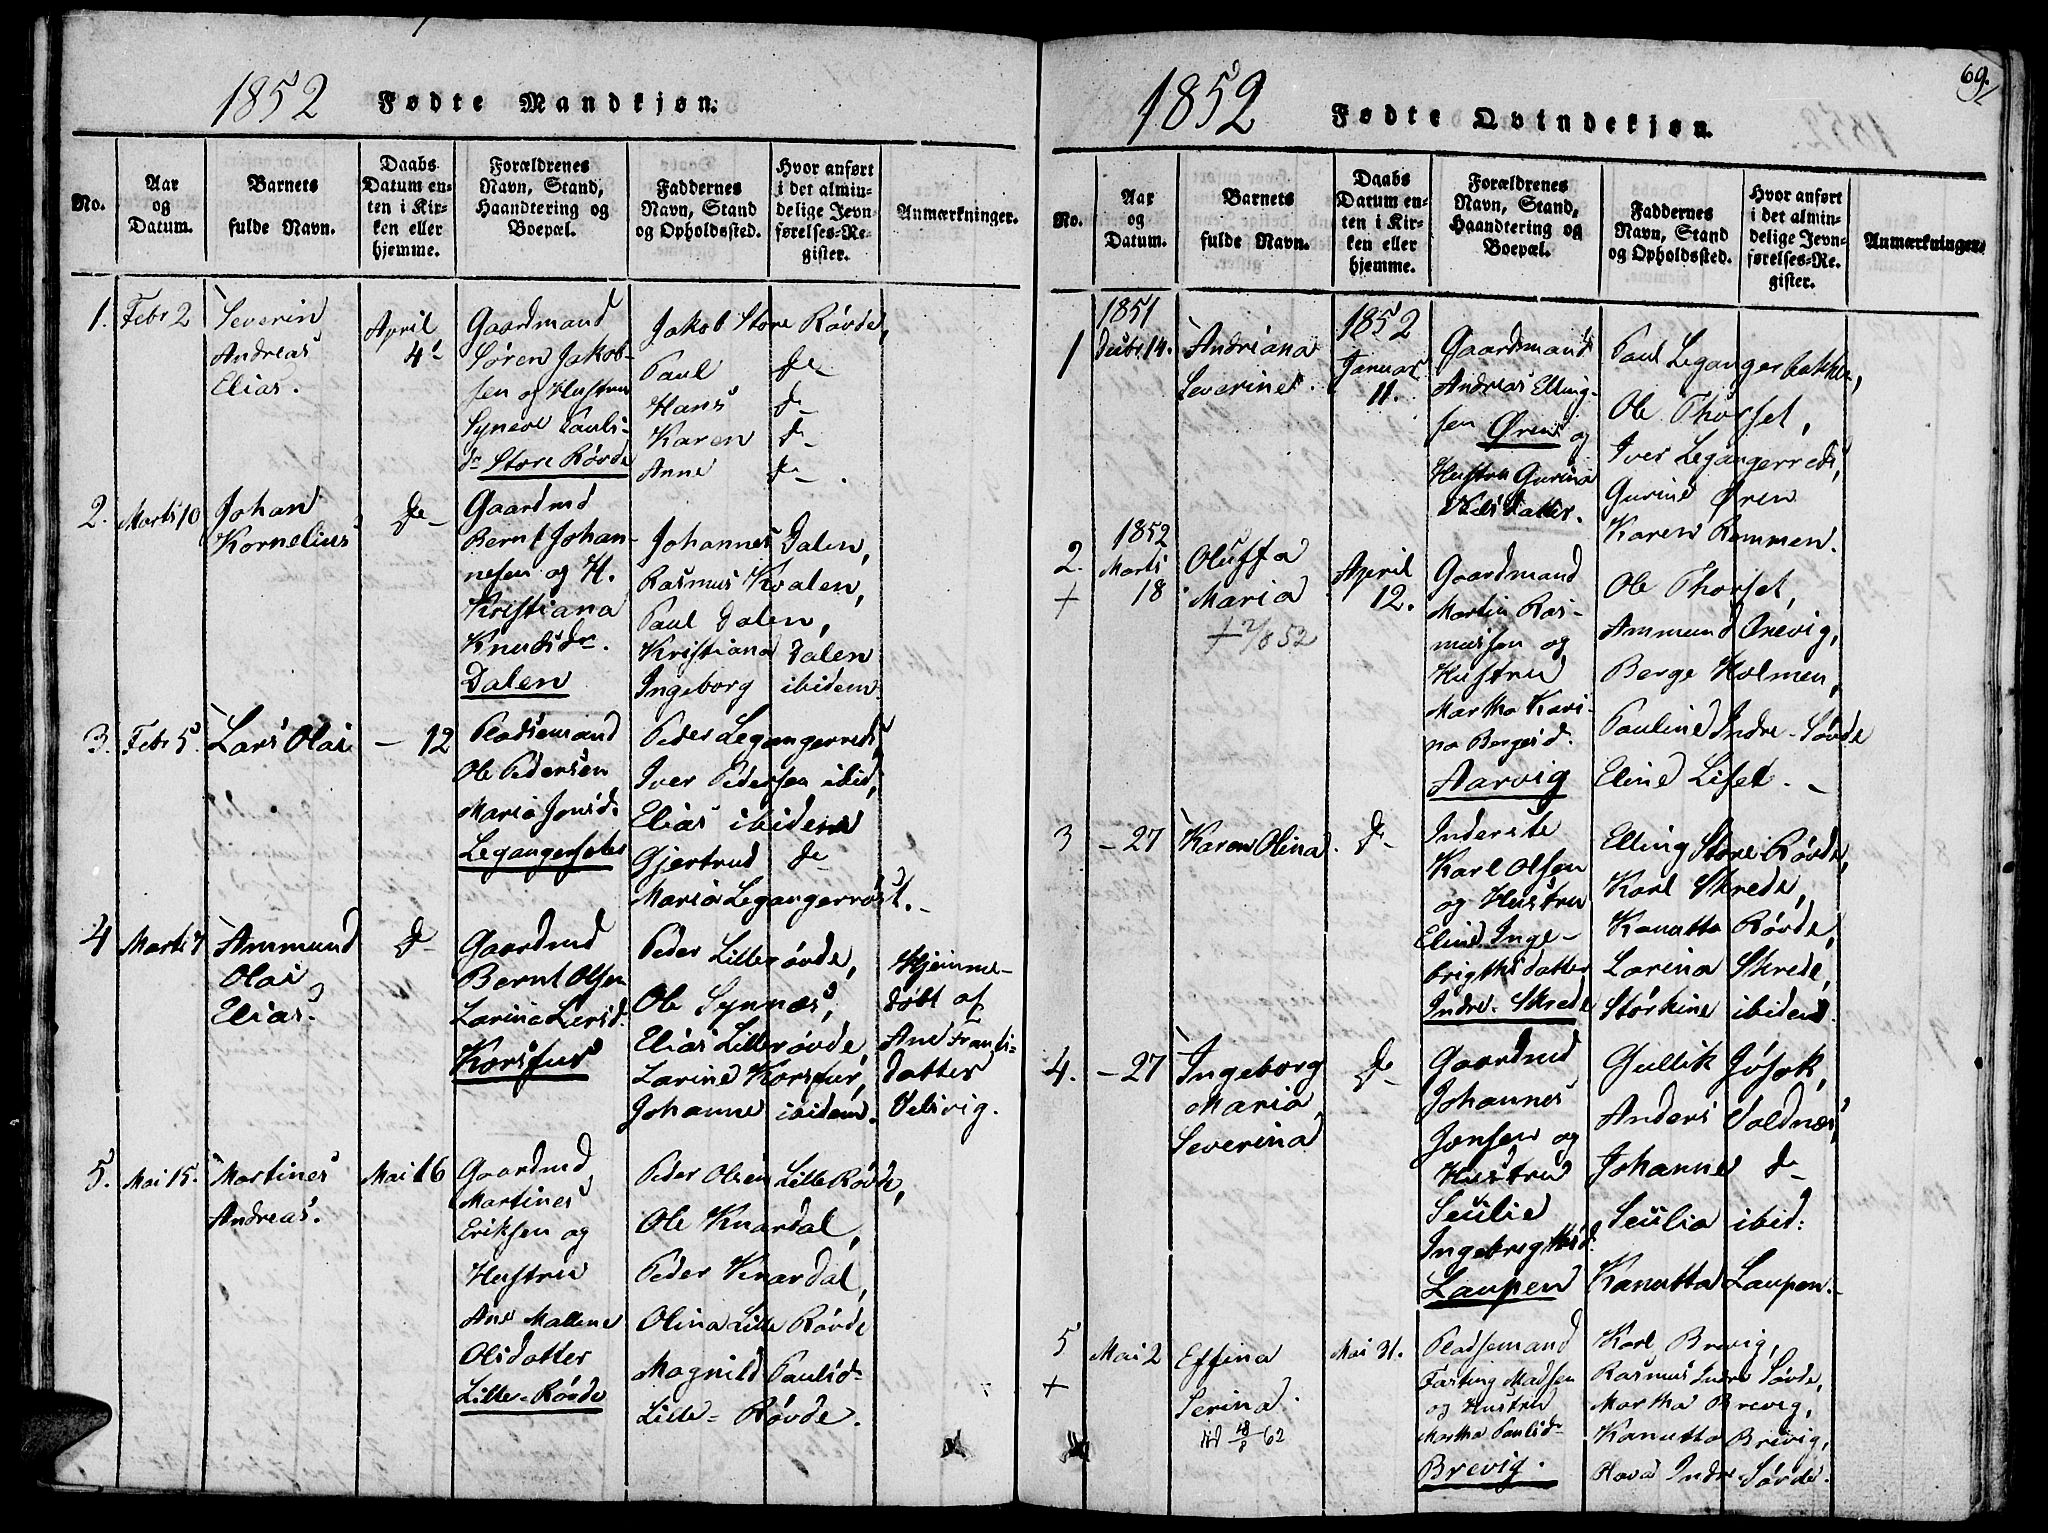 1852 Fødte Mandkjøn.
No.
Aar
og
Datum.
Barnets
fulde Navn.
Daabs
Datum en-
ten i Kir-
ken eller
hjemme.
Forældrenes
Navn, Stand,
Haandtering og
Boepæl.
Faddernes
Navn, Stand
og Opholdssted.
Hvor anført
i det almin-
delige Jevn-
førelses-Re-
gister.
Anmærkninger.
1.
Febr 2
Severin
Andreas
Elias.
April
4
Gaardmand
Søren Jakob-
sen og Hustru
Syneve Pauls-
dr Store Røvde
Jakob Store Røvde,
Paul do
Hans do
Karen do
Anne do.
2.
Marts 10
Johan
Kornelius
do
Gaardmd
Bernt Johan-
nesen og H.
Kristiana
Knudsdr.
Dalen
Johannes Dalen,
Rasmus Kvalen,
Paul Dalen,
Kristiana Dalen
Ingeborg ibidem
3.
Febr 5.
Lars Olai
- 12
Pladsemand
Ole Pedersen
Maria Jonsd.
Legangersæter
Peder Legangerred,
Iver Pedersen ibid,
Elias ibidem
Gjertrud do
Maria Legangerrøst.-
4
Marts 4
Ammund
Olai
Elias.
do
Gaardmd
Bernt Olsen
Larine Larsd.
Korsfur
Peder Lillerøvde,
Ole Synnæs,
Elias Lillerøvde,
Larine Korsfur,
Johanne ibidem.
Hjemme-
døbt af
Ane Frants-
datter
Velsvig.
5.
Mai 15.
Martines
Andreas.
Mai 16
Gaardmd
Martines
Eriksen og
Hustru
Ane Mallene
Olsdatter
Lille-Røvde
Peder Olsen Lille Røvde,
Ole Knardal,
Peder Knardal,
Olina Lille Røvde
Magnild Paulsd
Lille-Røvde.
69.
1852 Fødte Qvindekjøn.
No.
Aar
og
Datum.
Barnets
fulde Navn.
Daabs
Datum en-
ten i Kir-
ken eller
hjemme.
Forældrenes
Navn, Stand,
Haandtering og
Boepæl.
Faddernes
Navn, Stand
og Opholdssted.
Hvor anført
i det almin-
delige Jevn-
førelses-Re-
gister.
Anmærkninger.
1
1851
Decbr 14.
Andriana
Severine.
1852
Januar
11.
Gaardmand
Andreas Elling-
sen Øren og
Hustru Gurina
Paul Legangerbakken,
Ole Thorset,
Iver Legangerred,
Gurine Øren
Karen Rammen.
2.
+
1852
Marts
18
Oluffa
Maria
April
12.
Gaardmand
Martin Ras-
mussen og
Hustru
Martha Kari-
na Bergesd.
Aarvig
Ole Thorset,
Ammund Ørevig,
Berge Holmen,
Pauline Indre-Søvde
Eline Liset.-
3
- 27
Karen Olina.
do
Inderste
Karl Olsen
og Hustru
Eline Inge-
brigtsdatter
Indre-Skrede
Elling Store Røvde,
Karl Skrede,
Kanutta Røvde,
Larina Skrede,
Størkine ibidem.
4.
- 27
Ingeborg
Maria
Severina
do
Gaardmd
Johannes
Jonsen og
Hustru
Seselie
Ingebrigtsd.
Laupen
Gullik Jøsok,
Anders Voldnæs,
Johanne do
Seselia ibid:
Kanutta Laupen.-
5
+
Mai 2
Effina
Serina.
Mai 31.
Pladsemand
Fasting Madsen
og Hustru
Martha Paulsd
Brevig.
Karl Brevig,
Rasmus Indre Søvde,
Martha Brevig,
Kanutta Brevig,
Hava Indre Søvde.